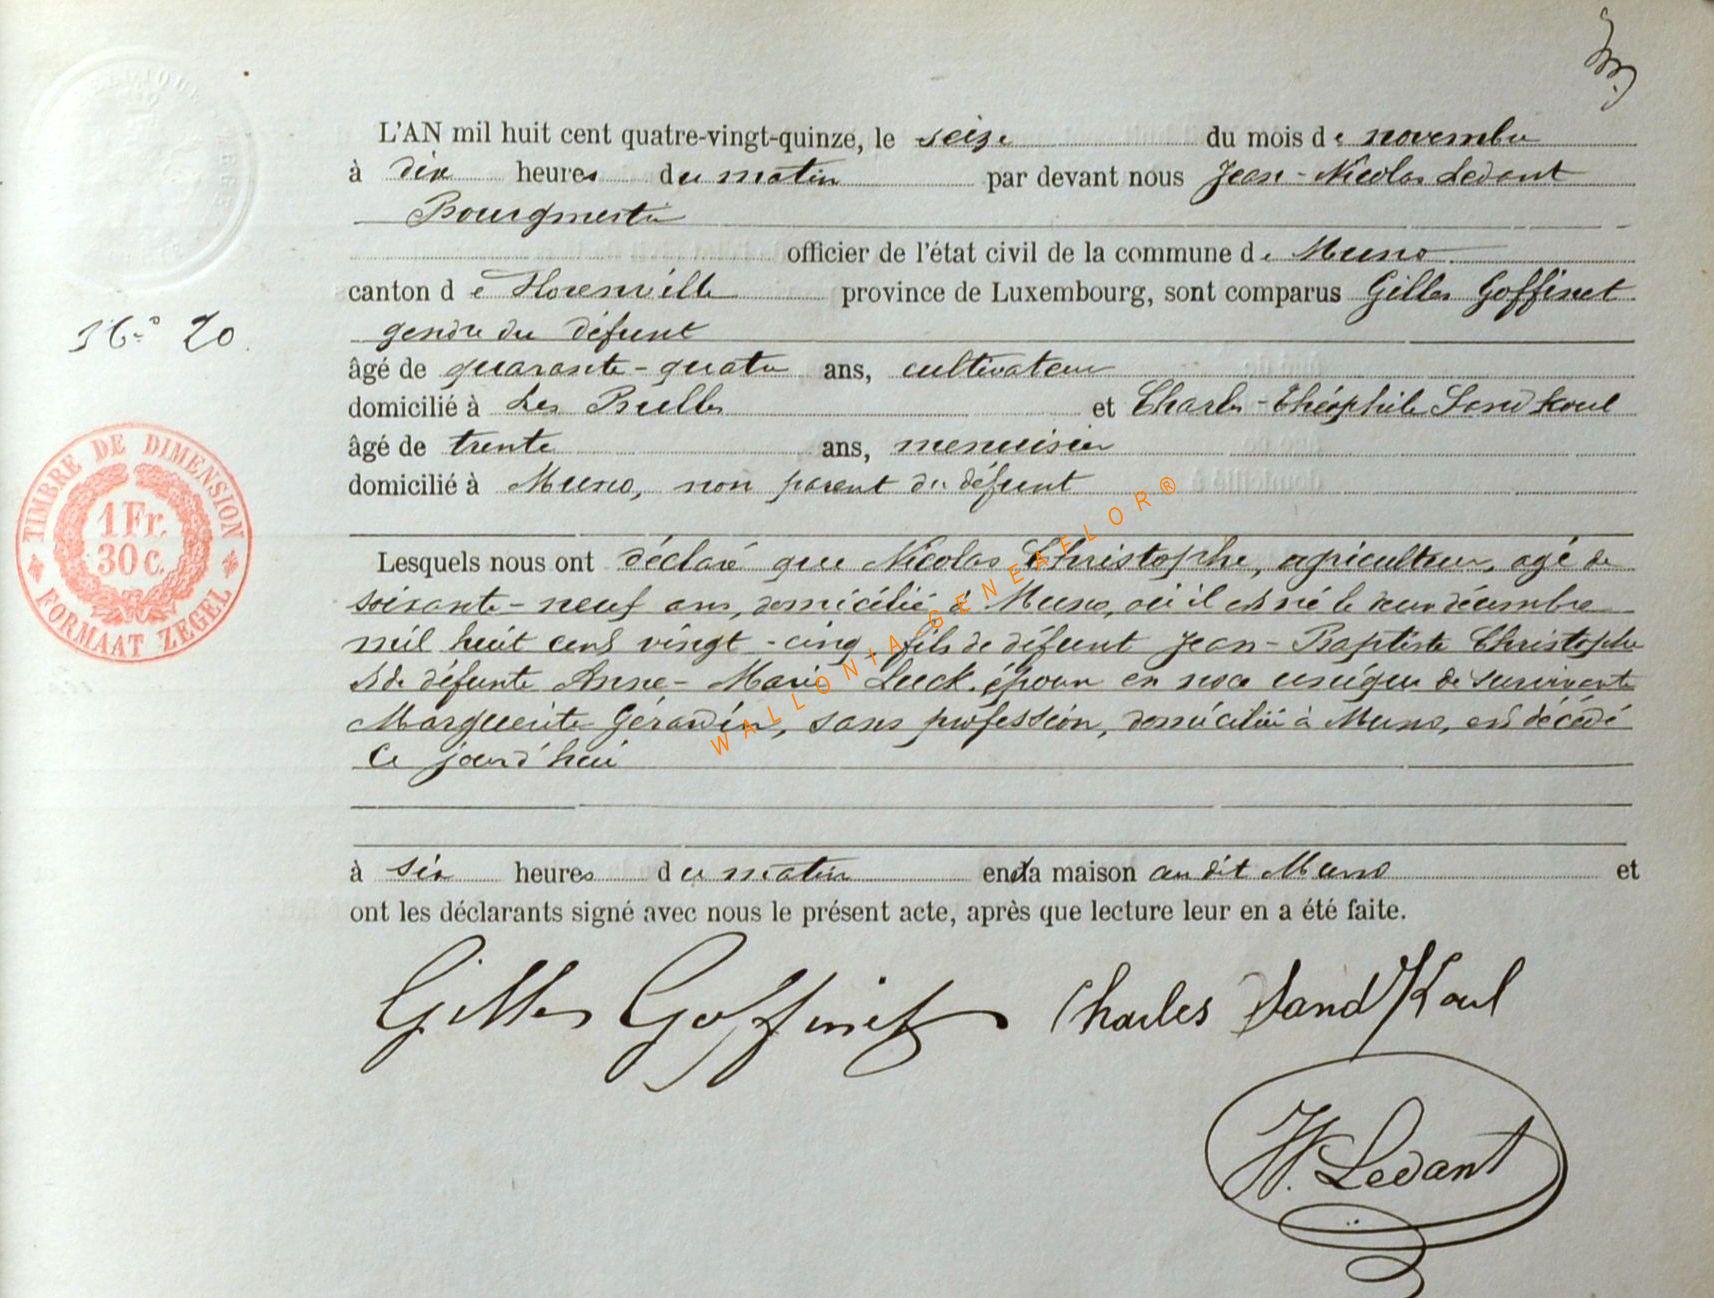 L'AN mil huit cent quatre-vingt-quinze, le seize du mois de novembre
à dix heures du matin par devant nous Jean-Nicolas Ledant
Bourgmestre
officier de l'état civil de la commune de Muno
canton de Florenville province de Luxembourg, sont comparus Gilles Goffinet
gendre du défunt
No 20.
âgé de quarante-quatre ans, cultivateur
domicilié à Les Bulles et Charles-Théophile Sandkoul
âgé de trente ans, menuisier
domicilié à Muno, non parent du défunt
TIMBRE DE DIMENSION
1 Fr.
30 c.
FORMAAT ZEGEL
Lesquels nous ont déclaré que Nicolas Christophe, agriculteur, agé de
soixante-neuf ans, domicilié à Muno, où il est né le deux décembre
mil huit cent vingt-cinq, fils de défunt Jean-Baptiste Christophe
et de défunte Anne-Marie Luck, époux en noce unique de survivante
Marguerite Gérardin, sans profession, domiciliée à Muno, est décédé
ce jourd'hui
WALLONIA-GENEAFLOR®
à six heures du matin en la maison au dit Muno et
ont les déclarants signé avec nous le présent acte, après que lecture leur en a été faite.
Gilles Goffinet Charles SandKoul
N. Ledant